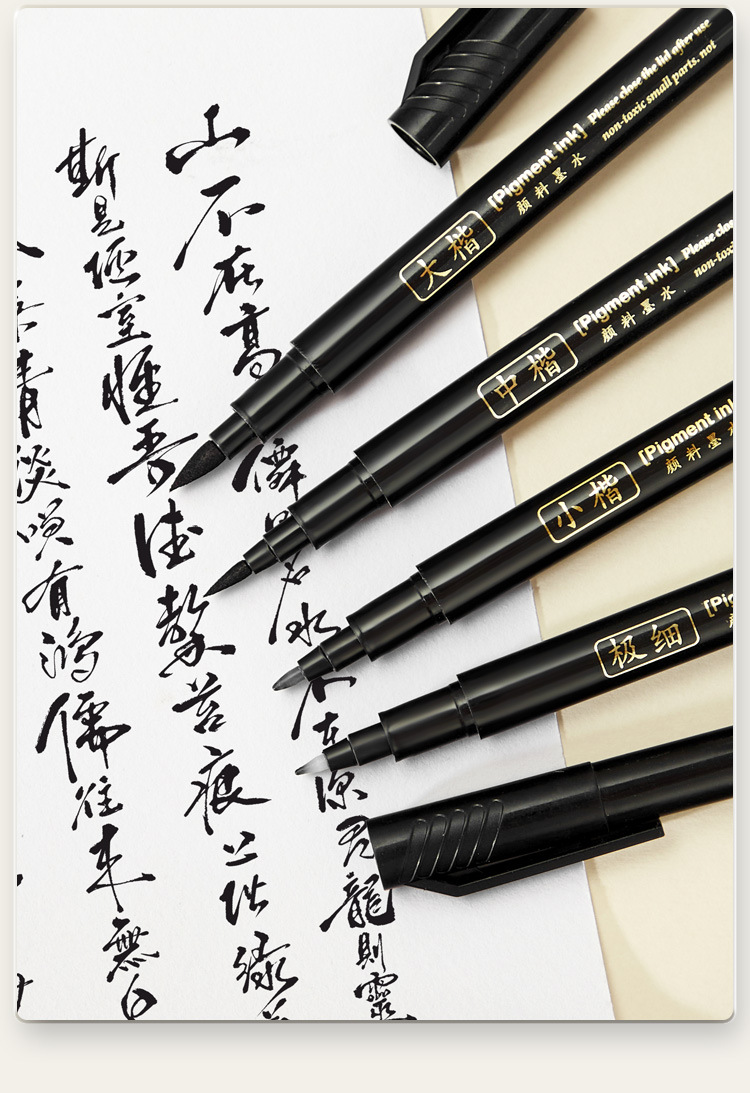 山不在高
僊則名水不在深有龍則靈
斯是陋室惟吾德馨苔痕上階綠
青談笑有鴻儒往來無白
大楷
[Pigment ink]
颜料墨水
Please close the lid after use
non-toxic small parts. not
中楷
[Pigment ink]
颜料墨水
Please
小楷
[Pigment
颜料墨
极细